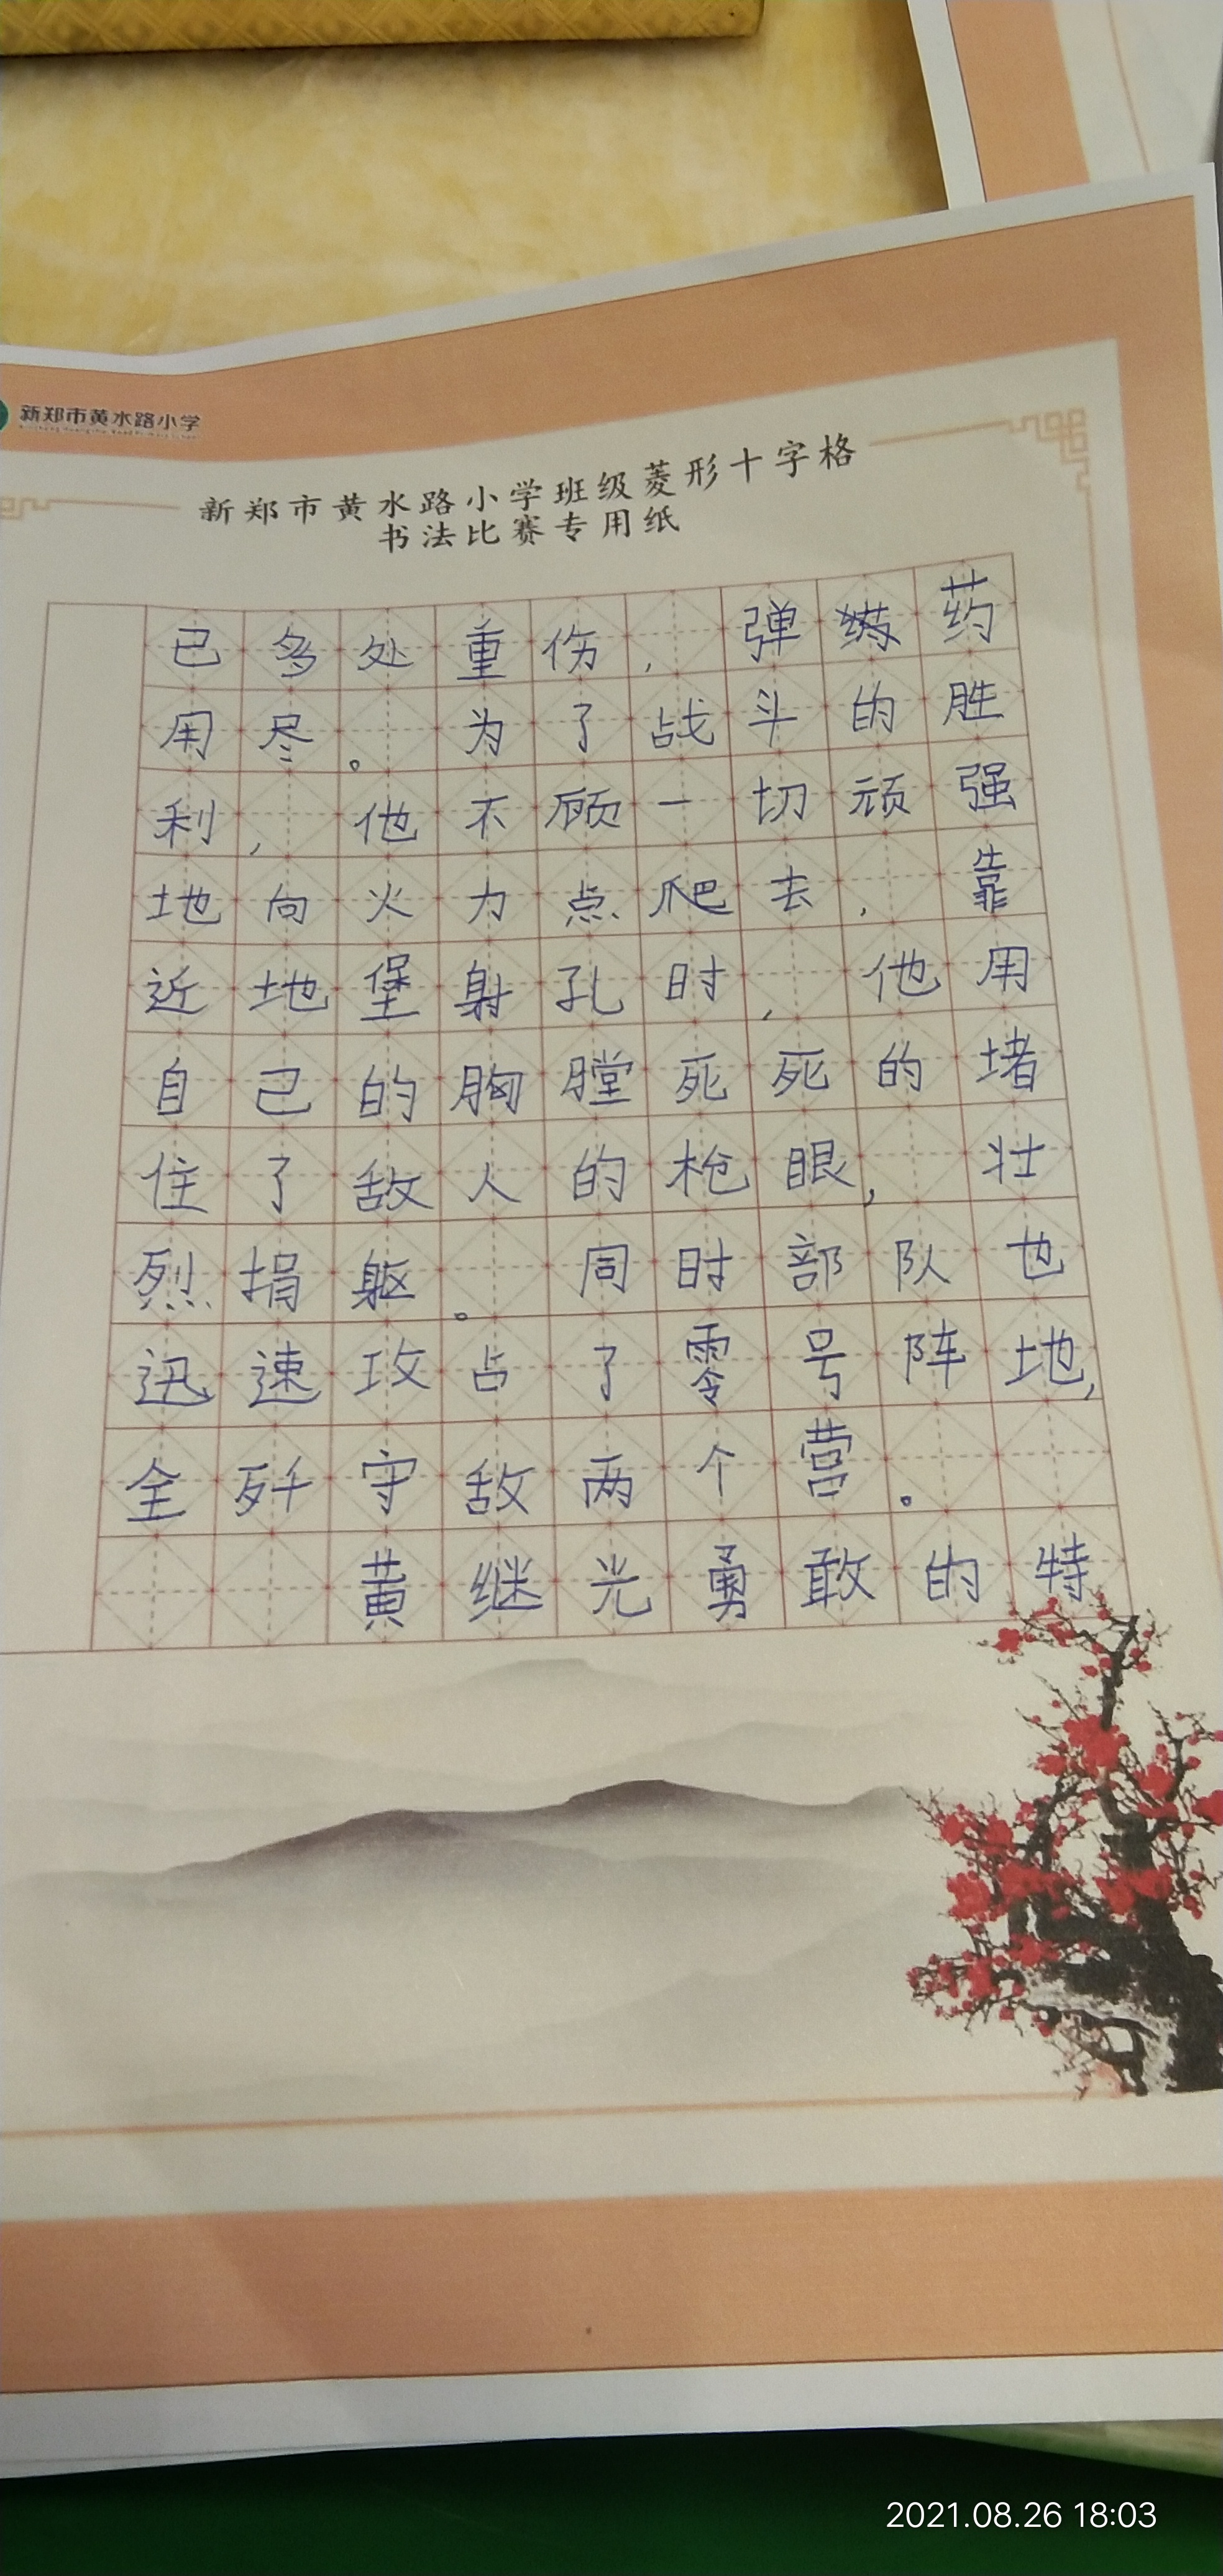 新郑市黄水路小学
新郑市黄水路小学班级菱形十字格
书法比赛专用纸
已多处重伤，弹药
用尽。为了战斗的胜
利，他不顾一切顽强
地向火力点爬去，靠
近地堡射孔时，他用
自己的胸膛死死的堵
住了敌人的枪眼，壮
烈捐躯。同时部队也
迅速攻占了零号阵地，
全歼守敌两个营。
黄继光勇敢的特
2021.08.26 18:03